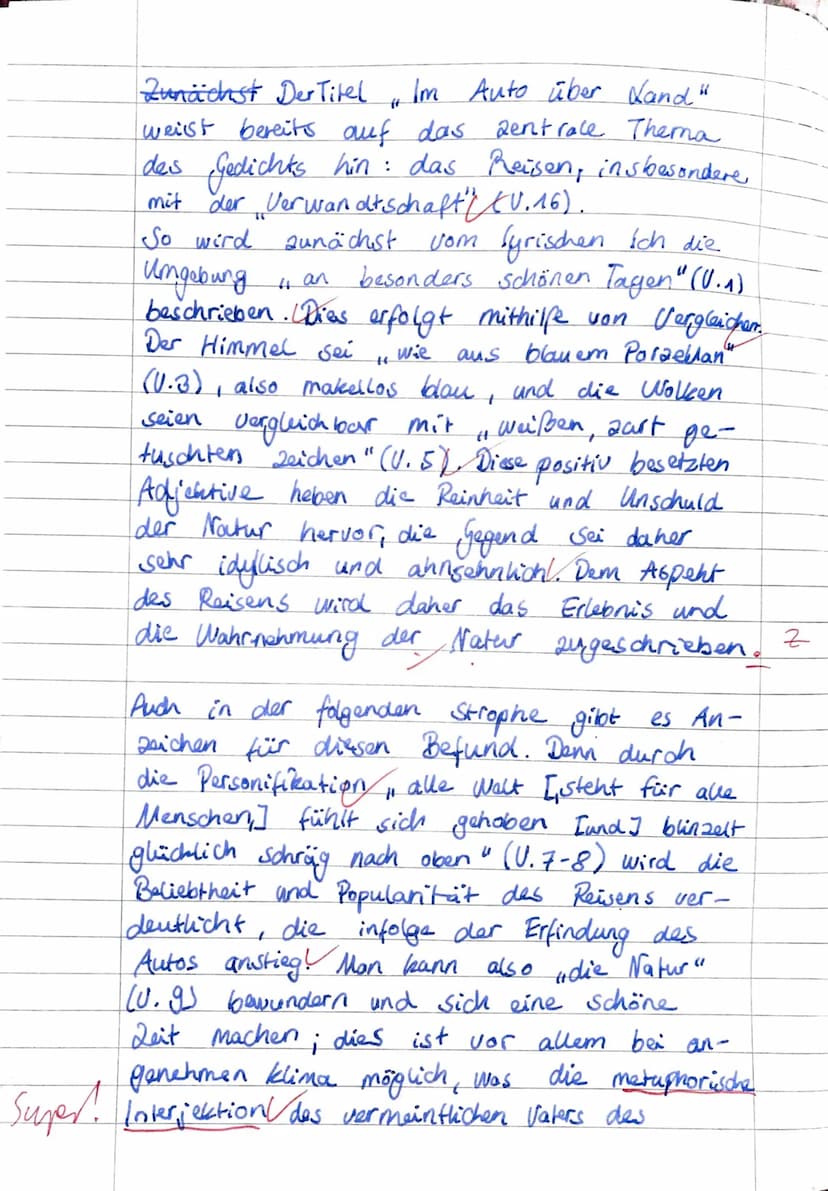 Zunächst Der Titel „Im Auto über Land"
weist bereits auf das zentrale Thema
des Gedichts hin: das Reisen, insbesondere
mit der „Verwandtschaft" (V.16).
So wird zunächst vom lyrischen Ich die
Umgebung „an besonders schönen Tagen" (V.1)
beschrieben. Dies erfolgt mithilfe von Vergleichen.
Der Himmel sei „wie aus blauem Porzellan"
(V.3), also makellos blau, und die Wolken
seien vergleichbar mit „weißen, zart ge-
tuschten Zeichen" (V. 5). Diese positiv besetzten
Adjektive heben die Reinheit und Unschuld
der Natur hervor, die Gegend sei daher
sehr idyllisch und ahnsehnlich. Dem Aspekt
des Reisens wird daher das Erlebnis und
die Wahrnehmung der Natur zugeschrieben. Z
Auch in der folgenden Strophe gibt es An-
zeichen für diesen Befund. Denn durch
die Personifikation „alle Welt [,steht für alle
Menschen,] fühlt sich gehoben [und] blinzelt
glücklich schräg nach oben" (V. 7-8) wird die
Beliebtheit und Popularität des Reisens ver-
deutlicht, die infolge der Erfindung des
Autos anstieg. Man kann also „die Natur"
(V. 9) bewundern und sich eine schöne
Zeit machen; dies ist vor allem bei an-
genehmen Klima möglich, was die metaphorische
Super! Interjektion des vermeintlichen Vaters des